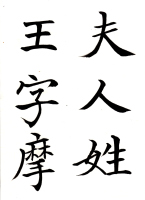 夫人姓
王字摩